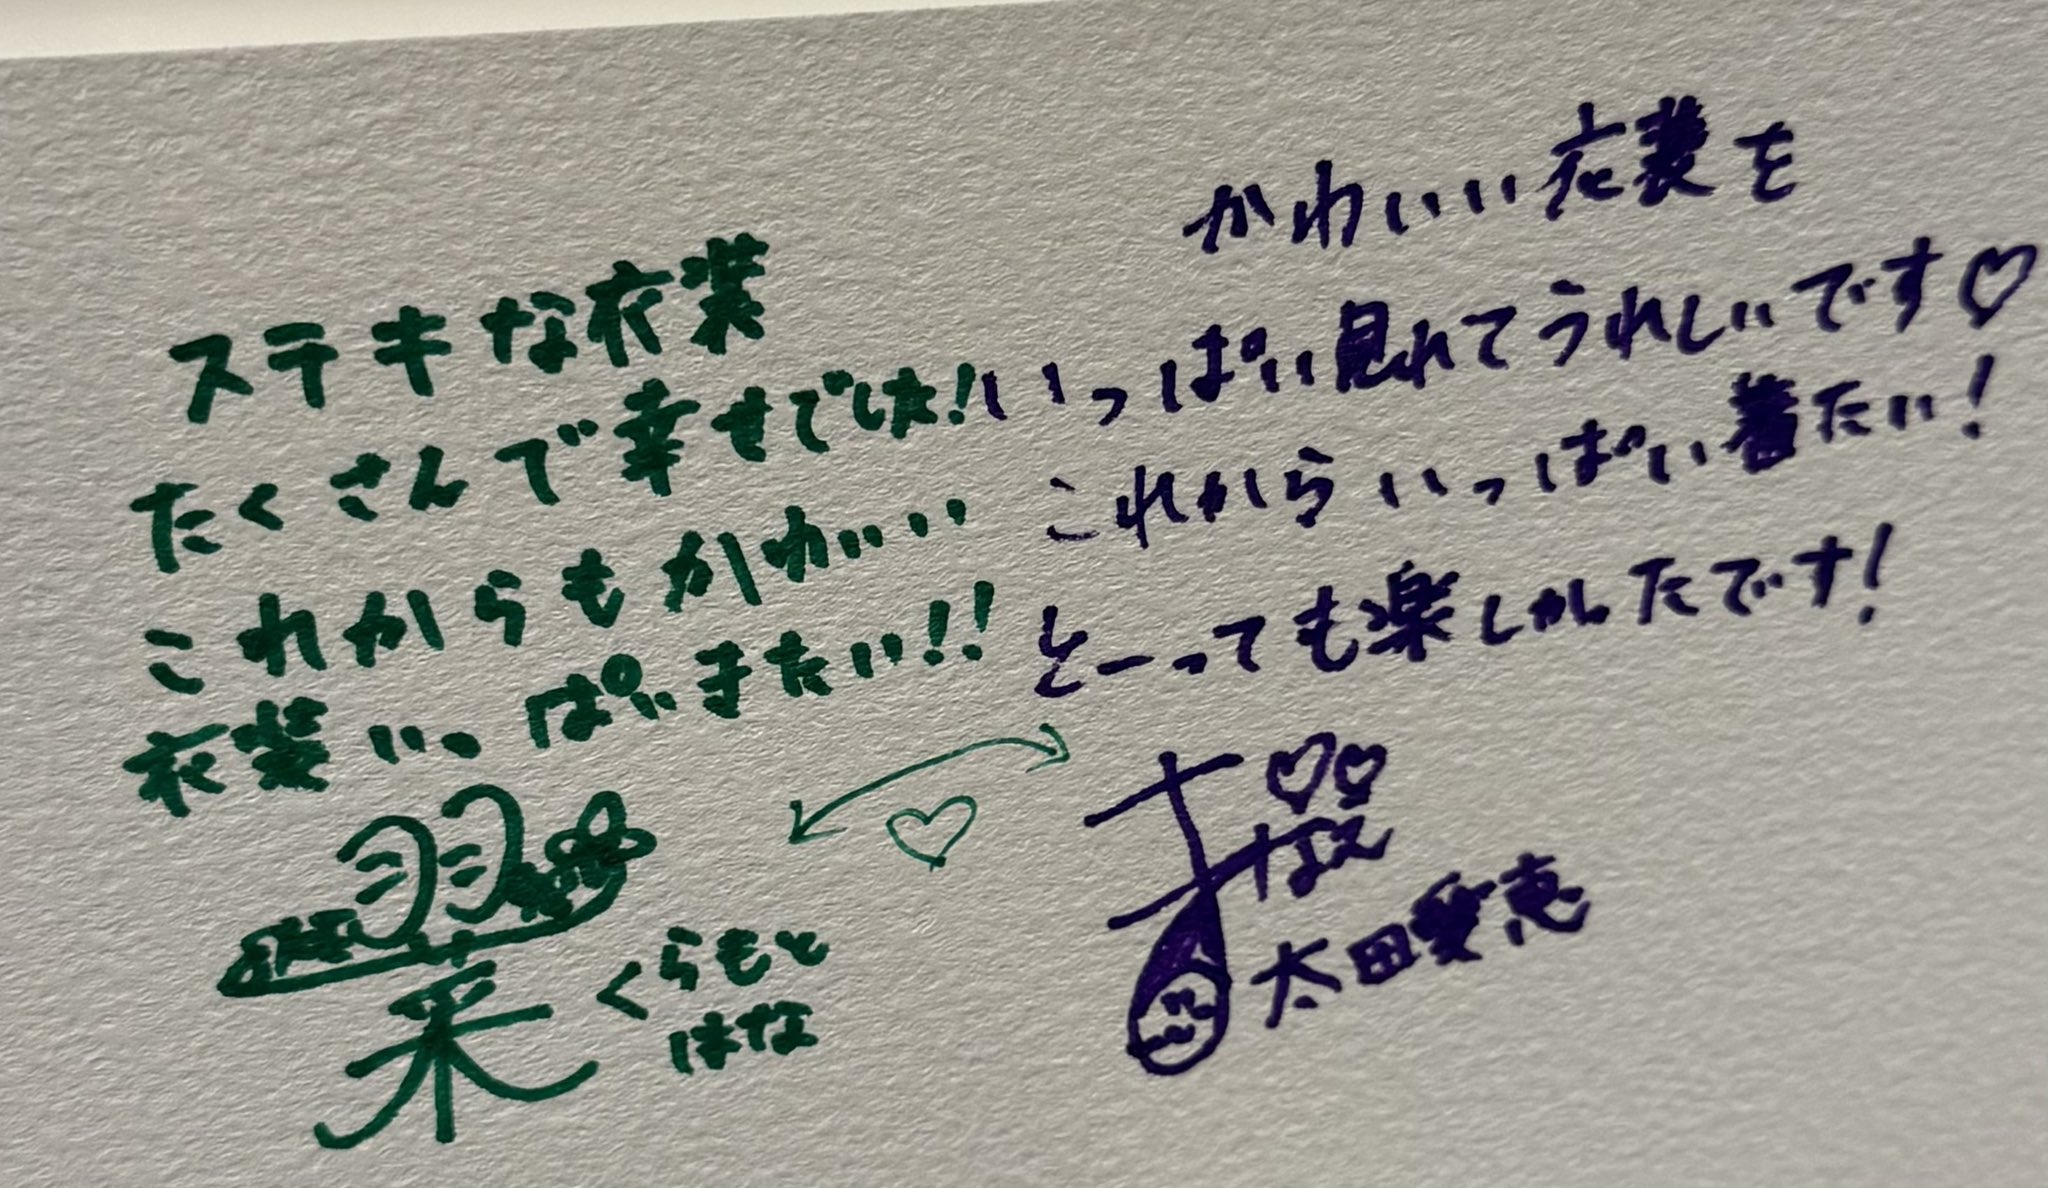 ステキな衣装
たくさんで幸せでした!
これからもかわいい
衣装いっぱいきたい!!
羽菜
くらもと
はな
かわいい衣装を
いっぱい見れてうれしいです♡
これからいっぱい着たい!
とーっても楽しかったです!
さなえ
太田愛恵